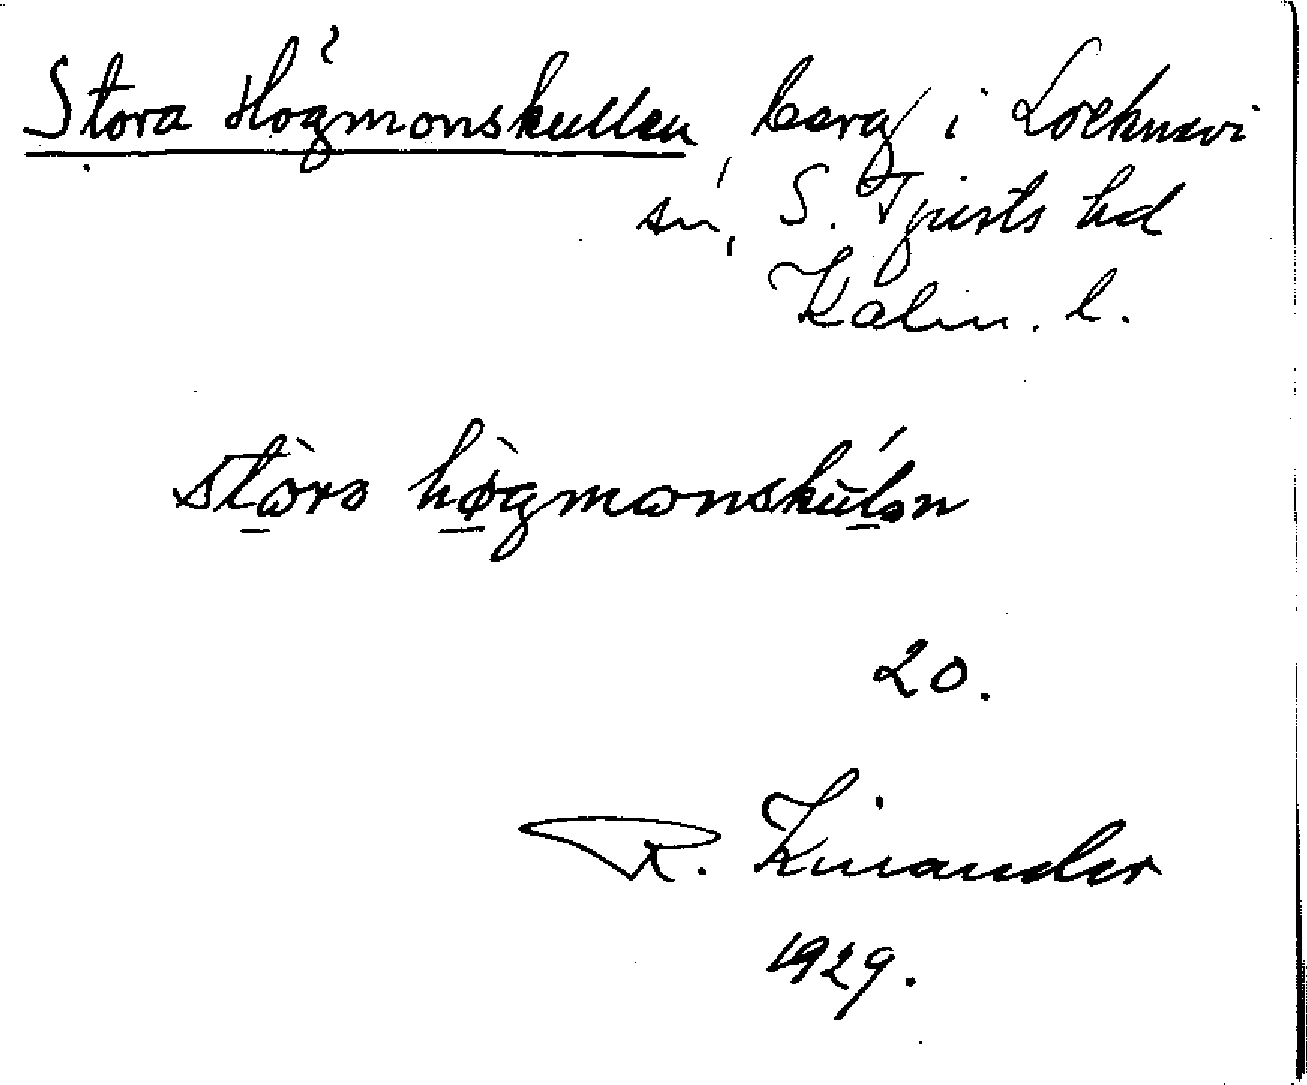 Stora Högmonskullen, berg i Locknevi
sn, S. Tjusts hd
Kalm. l.
stòrə hø̀gmɷnskúlən
20.
R. Kinander
1929.